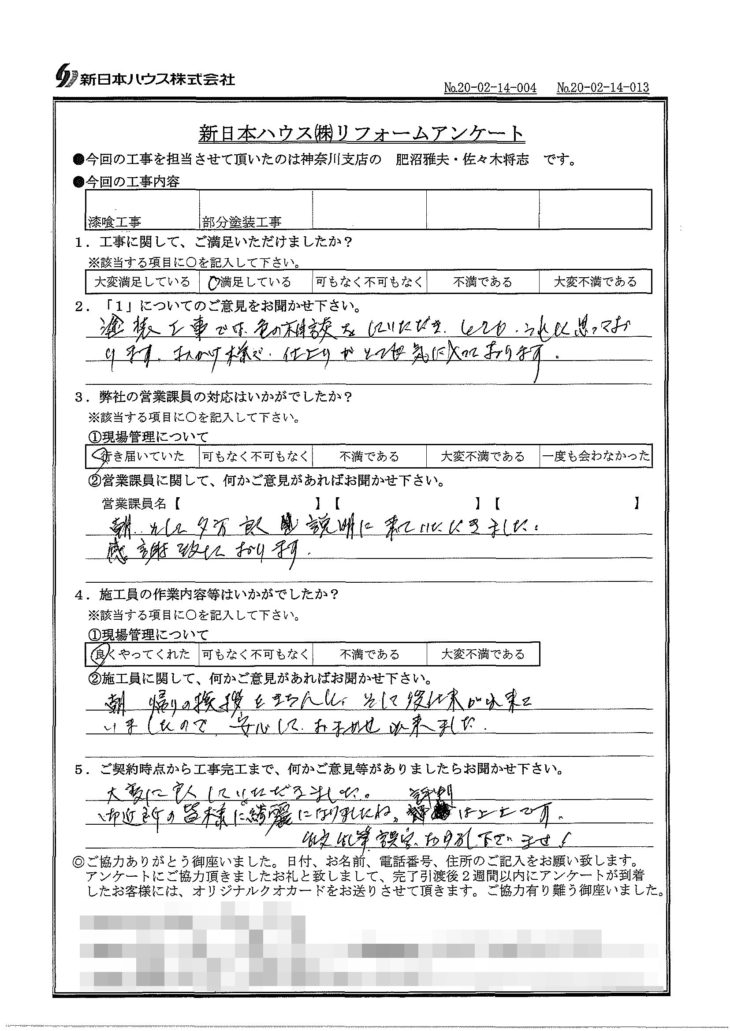 新日本ハウス株式会社
№20-02-14-004 №20-02-14-013
新日本ハウス㈱リフォームアンケート
●今回の工事を担当させて頂いたのは神奈川支店の 肥沼雅夫・佐々木将志 です。
●今回の工事内容
漆喰工事 部分塗装工事
1．工事に関して、ご満足いただけましたか？
※該当する項目に○を記入して下さい。
大変満足している ○満足している 可もなく不可もなく 不満である 大変不満である
2．「1」についてのご意見をお聞かせ下さい。
塗装工事では、色の相談をしていただき、とても、うれしく思ってお
ります。おかげ様で、仕上りがとても気に入っております。
3．弊社の営業課員の対応はいかがでしたか？
※該当する項目に○を記入して下さい。
①現場管理について
行き届いていた 可もなく不可もなく 不満である 大変不満である 一度も会わなかった
②営業課員に関して、何かご意見があればお聞かせ下さい。
営業課員名【 】【 】【 】
朝、そして夕方 良く 説明に来ていただきました。
感謝致しております。
4．施工員の作業内容等はいかがでしたか？
※該当する項目に○を記入して下さい。
①現場管理について
良くやってくれた 可もなく不可もなく 不満である 大変不満である
②施工員に関して、何かご意見があればお聞かせ下さい。
朝 帰りの挨拶をきちんと、そして後仕末が出来て
いましたので、安心して、おまかせ出来ました。
5．ご契約時点から工事完工まで、何かご意見等がありましたらお聞かせ下さい。
大変に良くしていただきました。
御近所の皆様に綺麗になりましたね。評判は上々です。
乱文乱筆誤字、お許し下さいませ！
◎ご協力ありがとう御座いました。日付、お名前、電話番号、住所のご記入をお願い致します。
アンケートにご協力頂きましたお礼と致しまして、完了引渡後２週間以内にアンケートが到着
したお客様には、オリジナルクオカードをお送りさせて頂きます。ご協力有り難う御座いました。